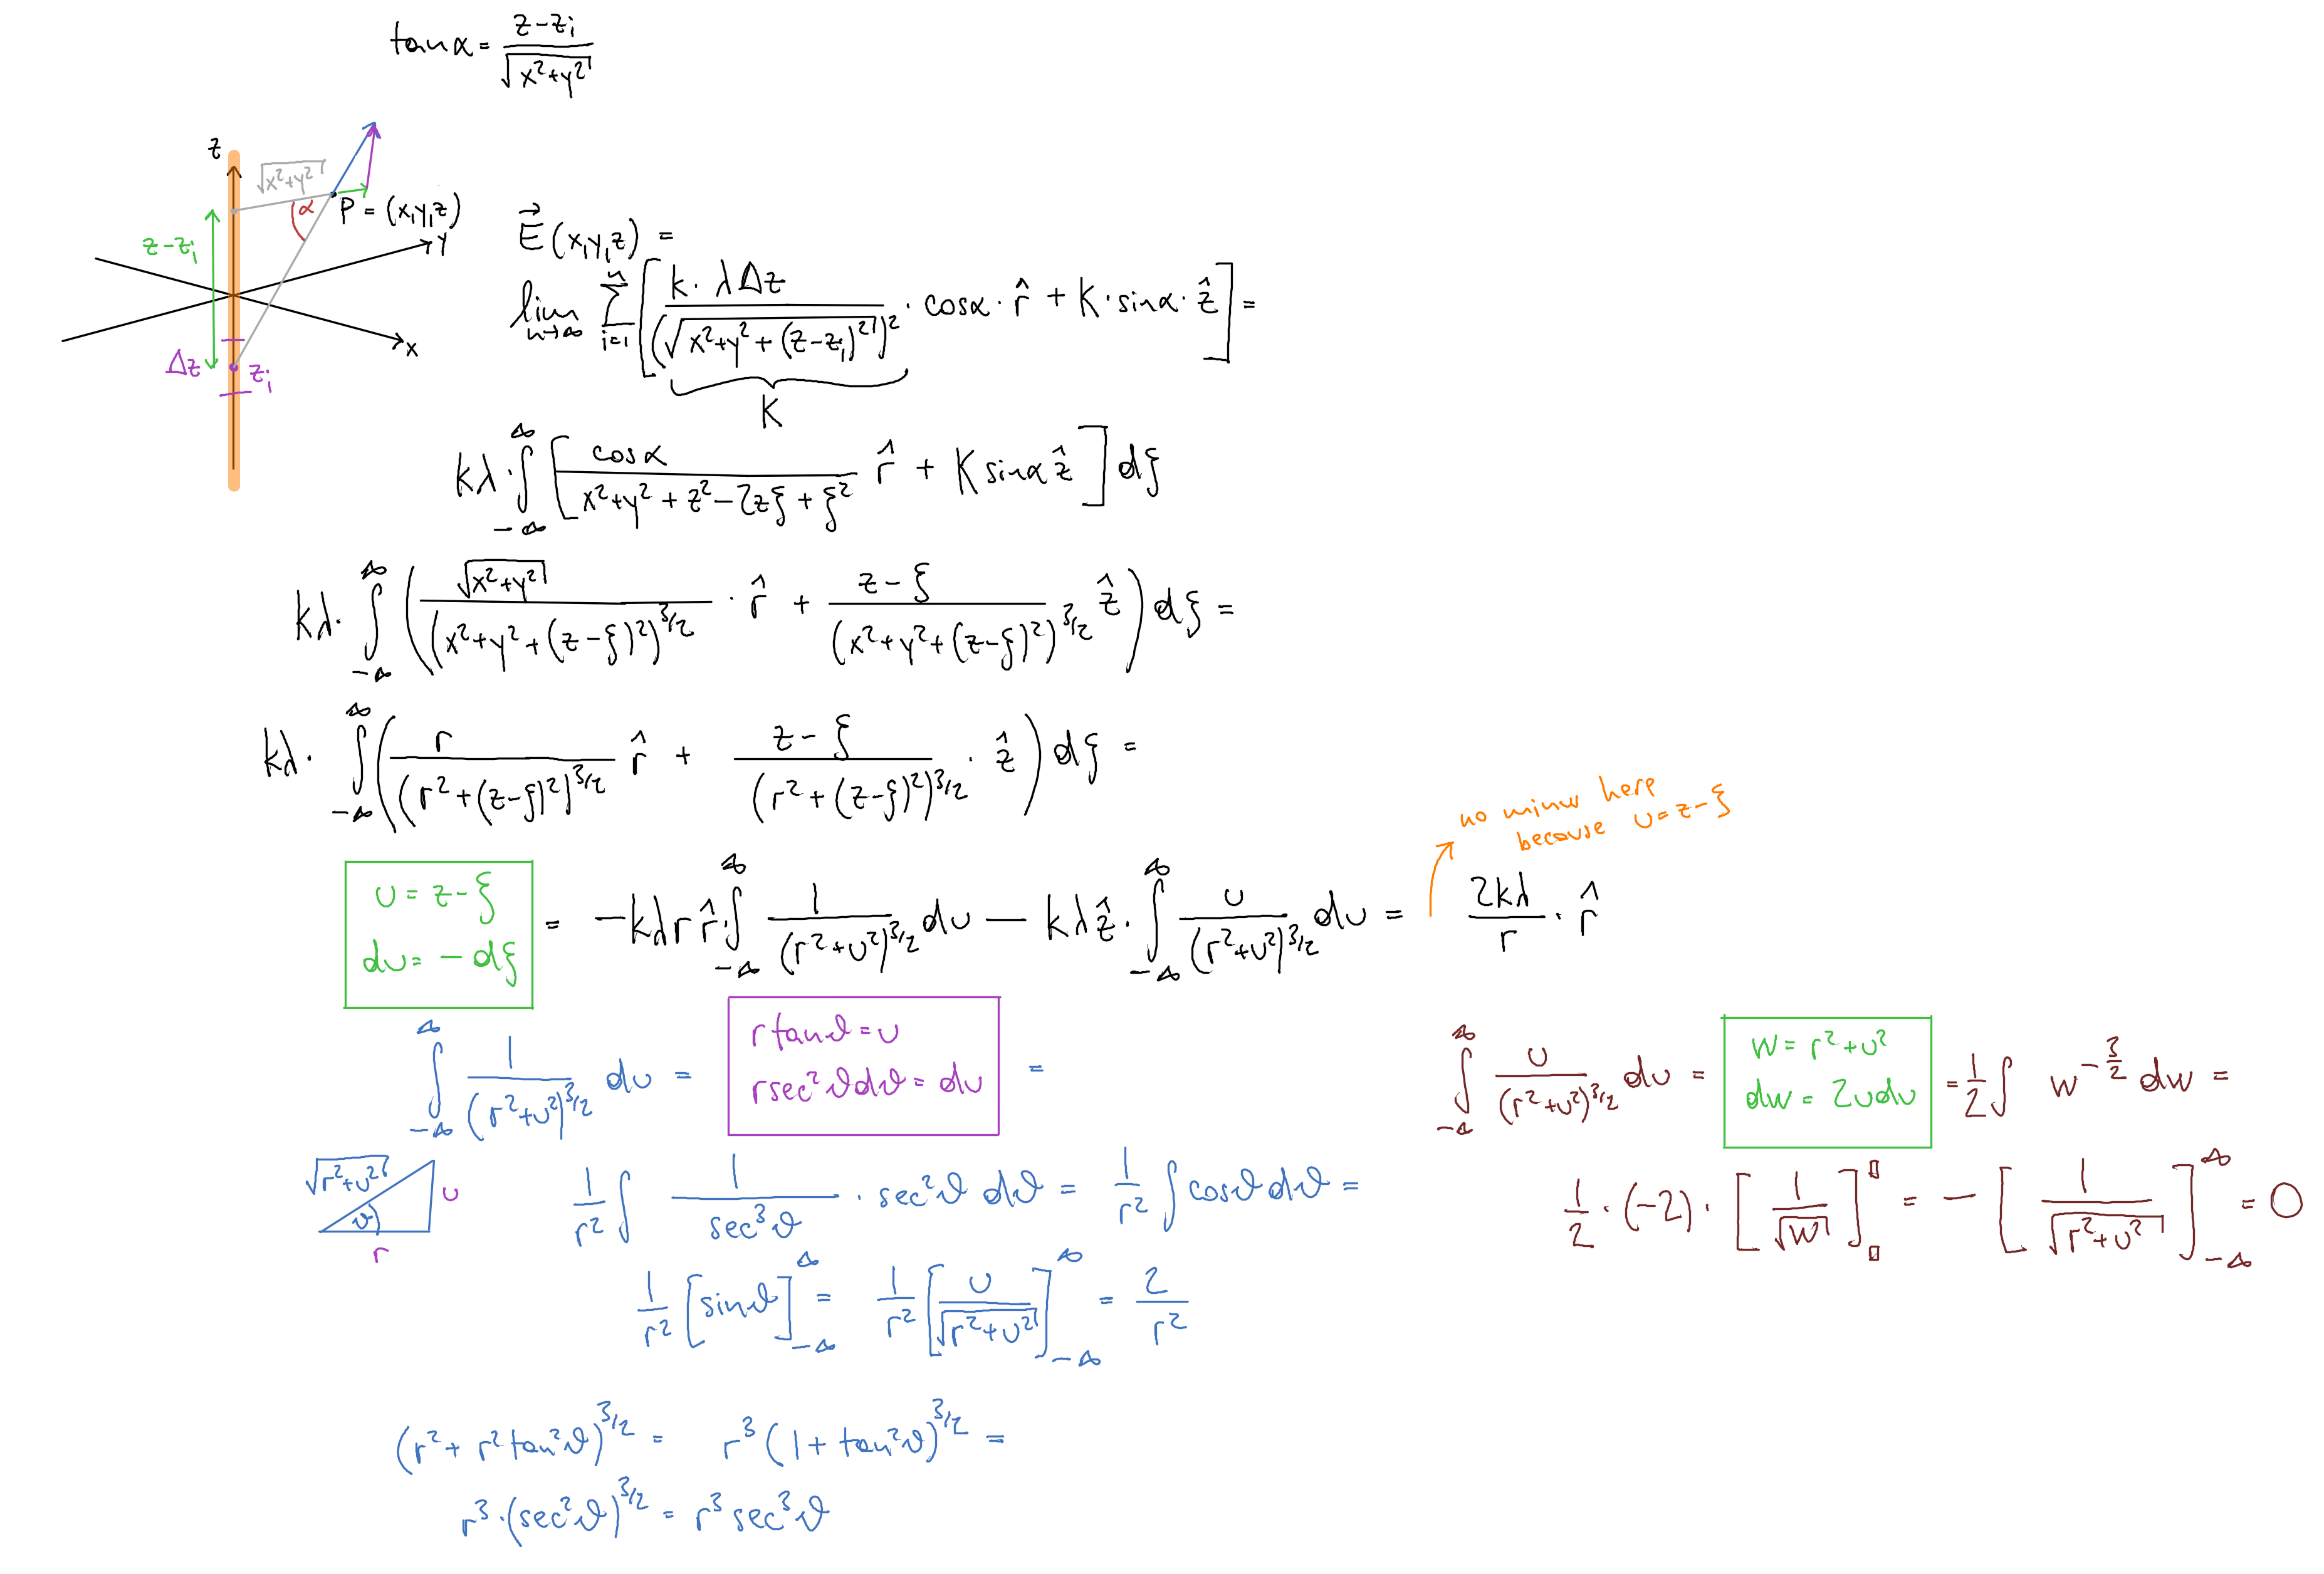 tanα = (z-zᵢ)/√(x²+y²)
z
√(x²+y²)
α
P = (x,y,z)
z-zᵢ
y
x
Δz
zᵢ
E⃗(x,y,z) =
lim n→∞ ∑ i=1 n [ k·λΔz / (√(x²+y²+(z-zᵢ)²))² · cosα · r̂ + K·sinα·ẑ ] =
K
kλ·∫ -∞ ∞ [ cosα / (x²+y²+z²-2zξ+ξ²) r̂ + K sinα ẑ ] dξ
kλ·∫ -∞ ∞ ( √(x²+y²) / (x²+y²+(z-ξ)²)^3/2 · r̂ + (z-ξ) / (x²+y²+(z-ξ)²)^3/2 ẑ ) dξ =
kλ·∫ -∞ ∞ ( r / (r²+(z-ξ)²)^3/2 r̂ + (z-ξ) / (r²+(z-ξ)²)^3/2 · ẑ ) dξ =
no minus here
because u=z-ξ
u = z-ξ
du = -dξ
= -kλr r̂·∫ -∞ ∞ 1 / (r²+u²)^3/2 du - kλẑ·∫ -∞ ∞ u / (r²+u²)^3/2 du = 2kλ/r · r̂
∫ -∞ ∞ 1 / (r²+u²)^3/2 du =
r tanϑ = u
r sec²ϑdϑ = du
=
√(r²+u²)
u
ϑ
r
1/r² ∫ 1/sec³ϑ · sec²ϑ dϑ = 1/r² ∫ cosϑdϑ =
1/r² [sinϑ] -∞ ∞ = 1/r² [ u/√(r²+u²) ] -∞ ∞ = 2/r²
(r²+r²tan²ϑ)^3/2 = r³(1+tan²ϑ)^3/2 =
r³·(sec²ϑ)^3/2 = r³sec³ϑ
∫ -∞ ∞ u / (r²+u²)^3/2 du =
w = r²+u²
dw = 2udu
= 1/2 ∫ w^-3/2 dw =
1/2·(-2)·[ 1/√w ] □ □ = -[ 1/√(r²+u²) ] -∞ ∞ = 0